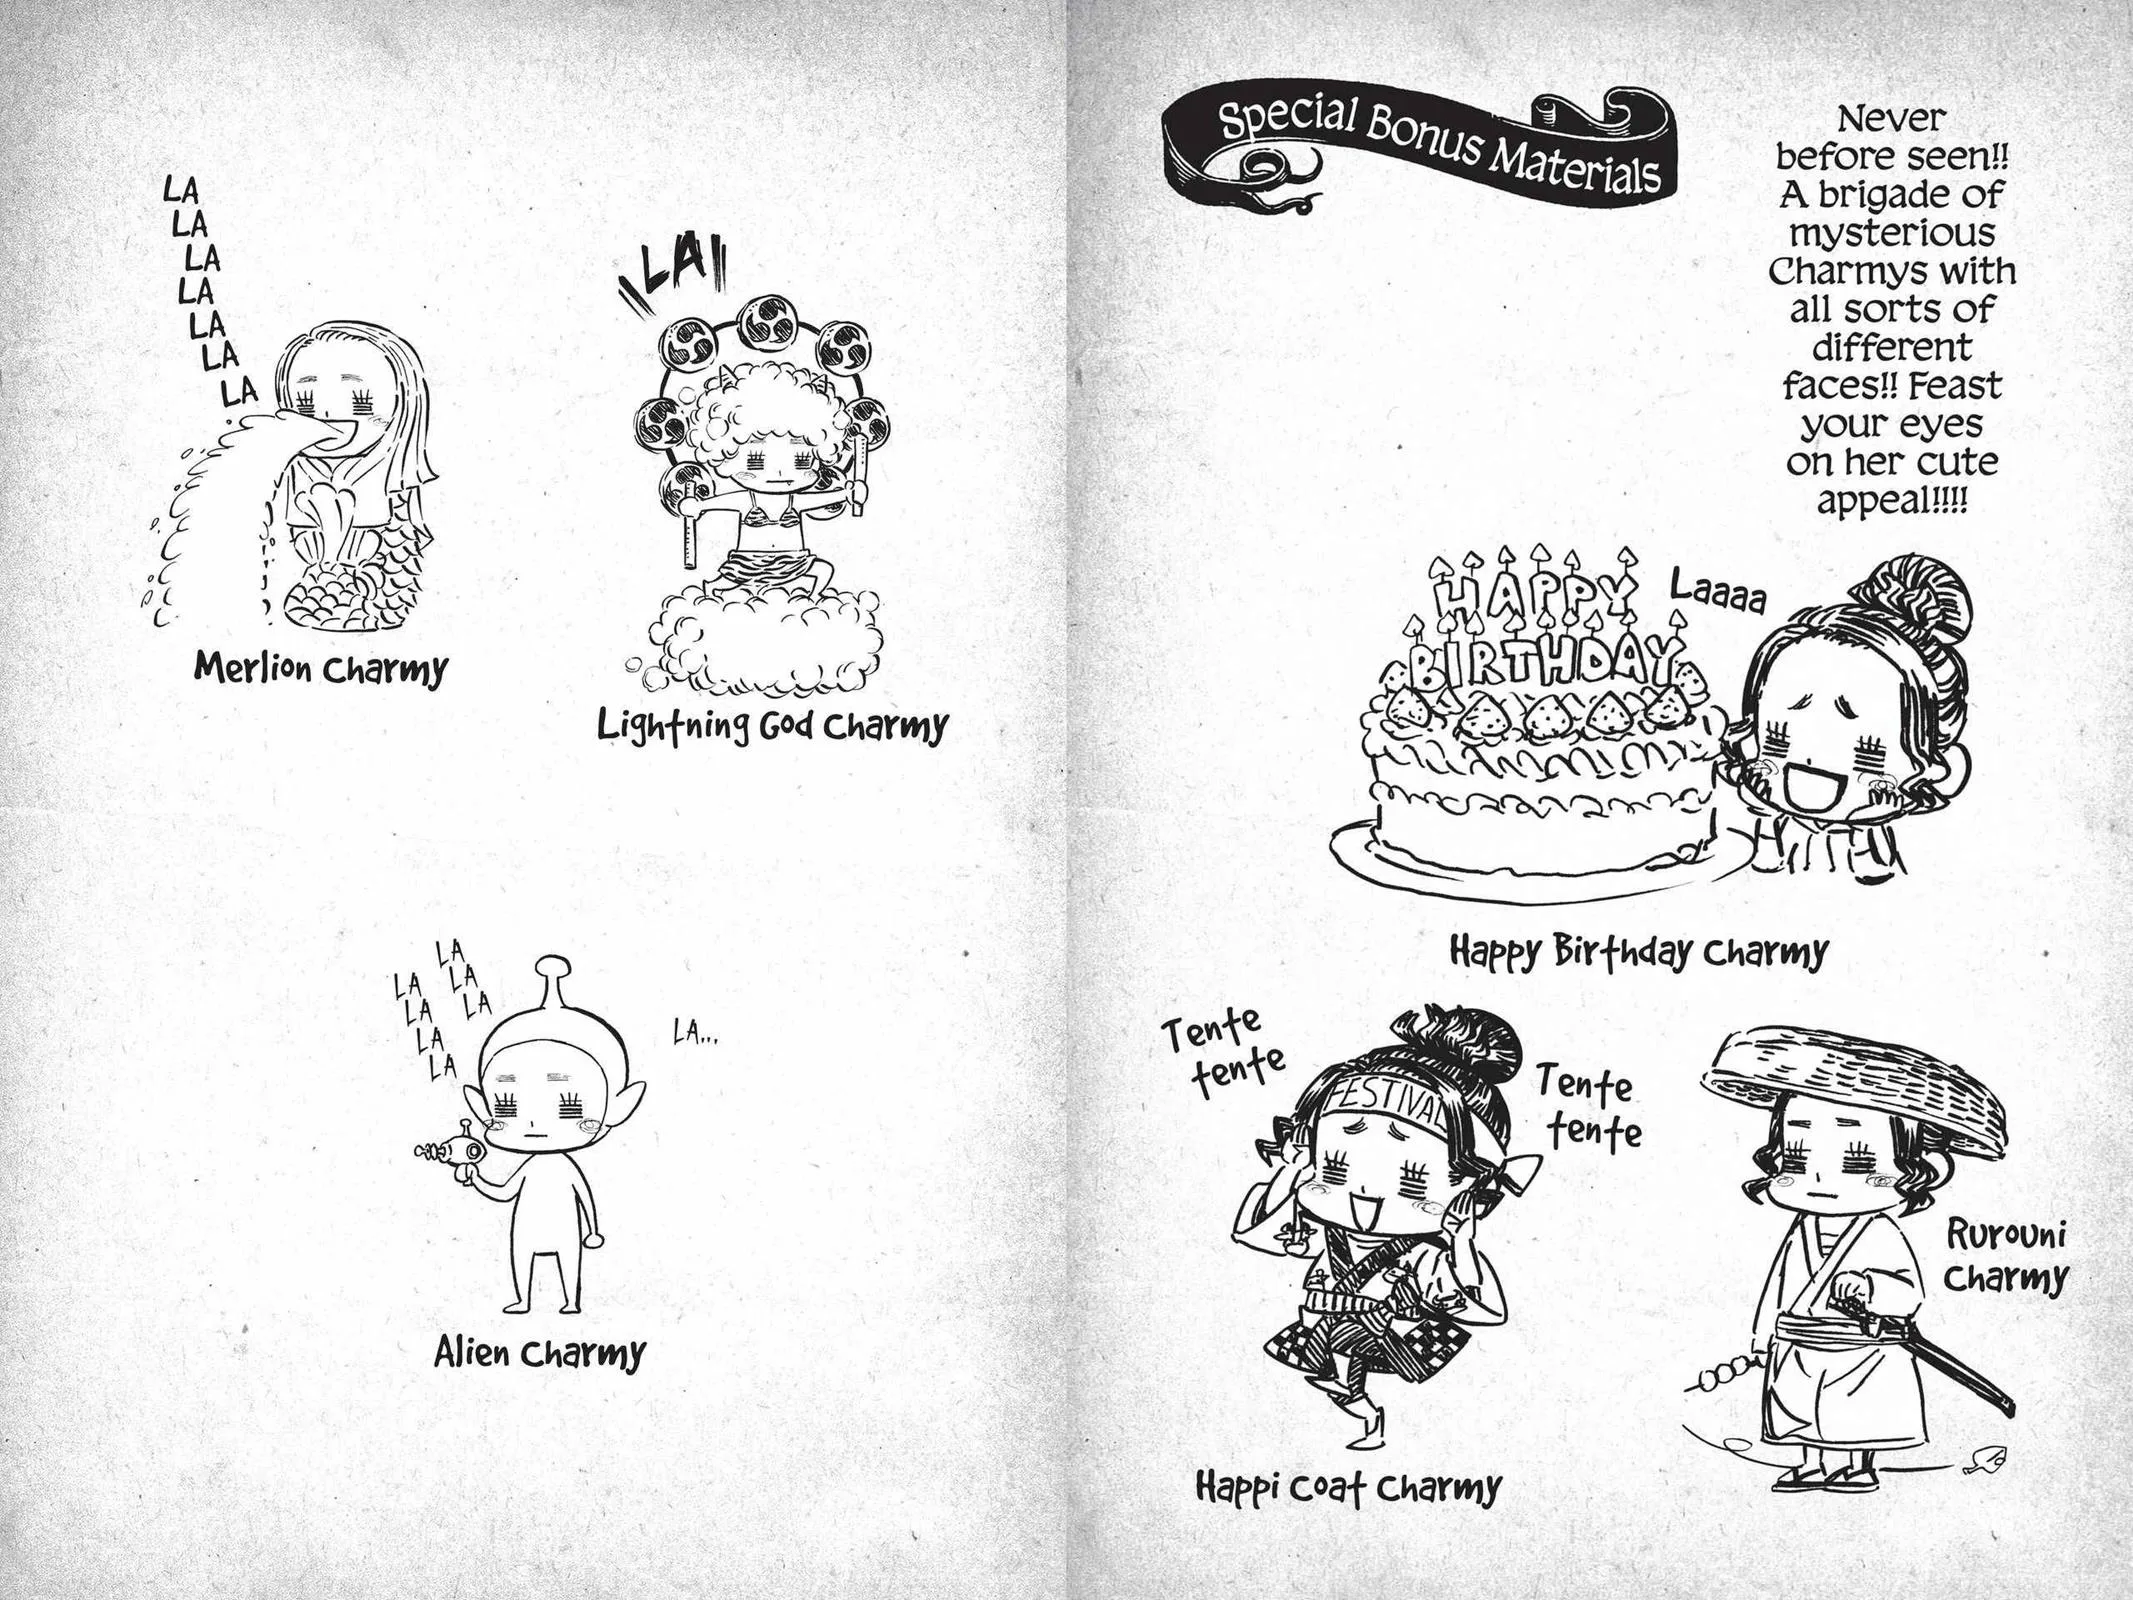 Special Bonus Materials
Never
before seen!!
A brigade of
mysterious
Charmys with
all sorts of
different
faces!! Feast
your eyes
on her cute
appeal!!!!
HAPPY
BIRTHDAY
Laaaa
Happy Birthday Charmy
Tente
tente
FESTIVAL
Tente
tente
Happi Coat Charmy
Rurouni
Charmy
LA
LA
LA
LA
LA
LA
LA
Merlion Charmy
LA
Lightning God Charmy
LA
LA
LA
LA
LA
LA
LA
LA...
Alien Charmy